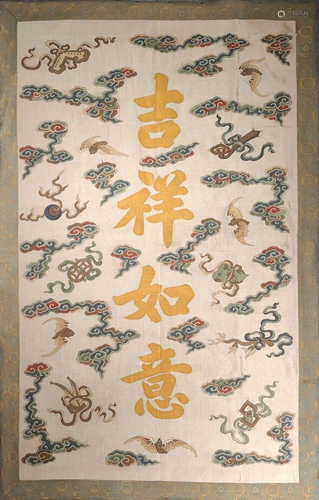 吉
祥
如
意